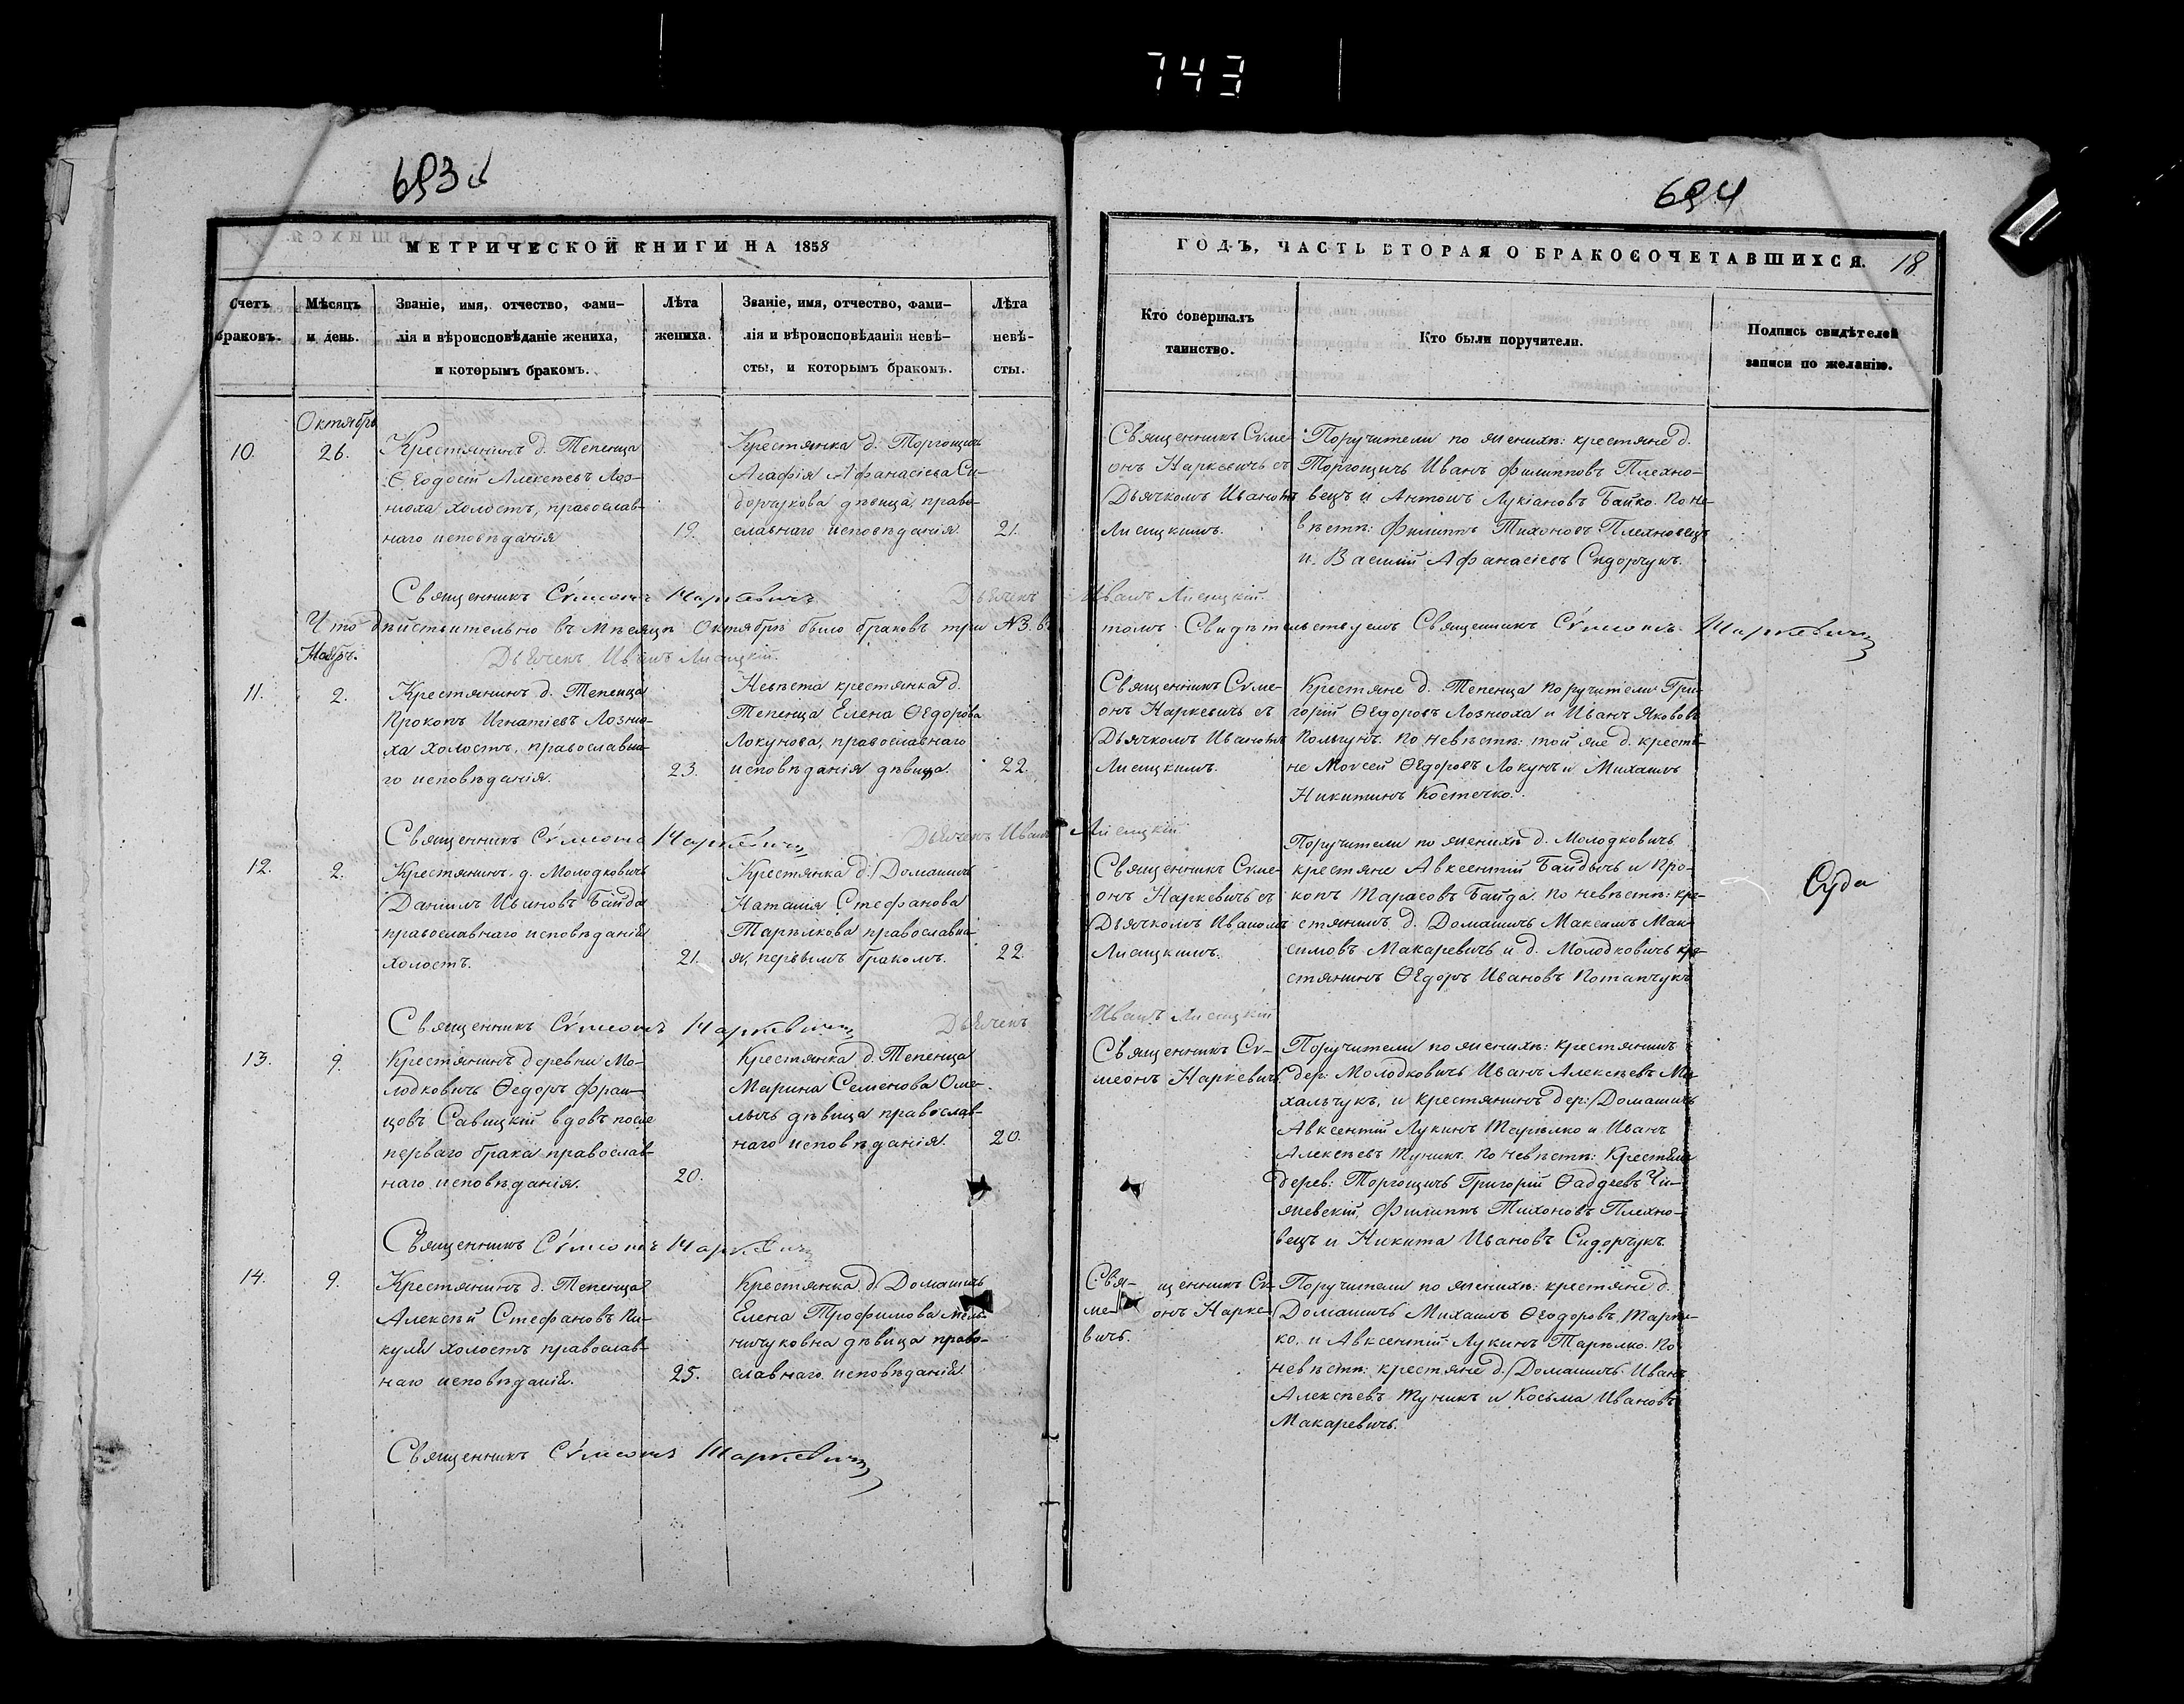 743
693
694
МЕТРИЧЕСКОЙ КНИГИ НА 1858
ГОДЪ, ЧАСТЬ ВТОРАЯ О БРАКОСОЧЕТАВШИХСЯ. 18.
Счетъ браковъ.
Мѣсяцъ и день.
Званіе, имя, отчество, фами-
лія и вѣроисповѣданіе жениха,
и которымъ бракомъ.
Лѣта жениха.
Званіе, имя, отчество, фами-
лія и вѣроисповѣданія невѣ-
сты, и которымъ бракомъ.
Лѣта невѣ-
сты.
Кто совершалъ
таинство.
Кто были поручители.
Подпись свидѣтелей
записи по желанію.
Октябрь
10.
26.
Крестянинъ д. Тепенца
Ѳеодосій Алексѣевъ Лоз-
нюха холостъ, православ-
наго исповѣданія
19.
Крестянка д. Торгощичь
Агафія Афанасіева Си-
дорчукова дѣвица, право-
славнаго исповѣданія.
21.
Священникъ Сѵме-
онъ Наркевичь съ
Дьячкомъ Иваномъ
Лисицкимъ.
Поручители по женихѣ: крестяне д.
Торгощичь Иванъ Филипповъ Плехно-
вецъ и Антонъ Лукіановъ Байко. По не-
вѣстѣ: Филиппъ Тихоновъ Плехновецъ
и Василій Афанасіевъ Сидорчукъ.
Священникъ Сѵмеонъ Наркевичъ Дьячекъ Иванъ Лисицкій.
Что дѣйствительно въ Мѣсяцѣ Октябрѣ было браковъ три №3. въ томъ Свидѣтельствуемъ Священникъ Сѵмеонъ Наркевичъ
Ноябрь.
Дьячекъ Иванъ Лисицкій.
11.
2.
Крестянинъ д. Тепенца
Прокопъ Игнатіевъ Лозню-
ха холостъ, православна-
го исповѣданія.
23.
Невѣста крестянка д.
Тепенца Елена Ѳедорова
Локунова, православнаго
исповѣданія дѣвица.
22.
Священникъ Сѵме-
онъ Наркевичь съ
Дьячкомъ Иваномъ
Лисицкимъ.
Крестяне д. Тепенца поручители Гри-
горій Ѳедоровъ Лознюха и Иванъ Яковов
Полгунъ. По невѣстѣ: той же д. крестя-
не Моѵсей Ѳедоровъ Локунъ и Михаилъ
Никитинъ Костечко.
Священникъ Сѵмеонъ Наркевичъ Дьячекъ Иванъ Лисицкій
12.
2.
Крестянинъ д. Молодковичь
Даніилъ Ивановъ Байда
православнаго исповѣданія
холостъ.
21.
Крестянка д. Домашичь
Наталія Стефанова
Тарѣлкова православна-
я, первымъ бракомъ.
22.
Священникъ Сѵме-
онъ Наркевичь съ
Дьячкомъ Иваномъ
Лисицкимъ.
Поручители по женихѣ д. Молодковичь
крестяне Авксентій Байдычь и Про-
копъ Тарасовъ Байда. По невѣстѣ: кре-
стянинъ д. Домашичь Максимъ Мак-
симовъ Макаревичь и д. Молодковичь кре-
стянинъ Ѳедоръ Ивановъ Потапчукъ
Суда
Священникъ Сѵмеонъ Наркевичъ Дьячекъ Иванъ Лисицкій
13.
9.
Крестянинъ деревни Мо-
лодковичь Ѳедоръ Фран-
цовъ Савицкій вдовъ после
перваго брака православ-
наго исповѣданія.
20.
Крестянка д. Тепенца
Марина Семенова Оме-
личь дѣвица православ-
наго исповѣданія.
20.
Священникъ Сѵ-
меонъ Наркевичь.
Поручители по женихѣ: крестянинъ
дер: Молодковичь Иванъ Алексѣевъ Ми-
хальчукъ, и крестянинъ дер: Домашичь
Авксентій Лукинъ Тарѣлко и Иванъ
Алексѣевъ Туникъ. По невѣстѣ: Крестяне
дерев: Торгощичь Григорій Ѳадѣевъ Чи-
жевскій, Филиппъ Тихоновъ Плехно-
вецъ и Никита Ивановъ Сидорчукъ.
Священникъ Сѵмеонъ Наркевичъ
14.
9.
Крестянинъ д. Тепенца
Алексѣй Стефановъ Пи-
куля холостъ православ-
наго исповѣданія.
25.
Крестянка д. Домашичь
Елена Трофимова Мель-
ничуковна дѣвица право-
славнаго исповѣданія.
Свя- щенникъ Сѵ-
ме- онъ Нарке-
вичь.
Поручители по женихѣ: крестяне д.
Домашичь Михаилъ Ѳеодоровъ Тарѣл-
ко, и Авксентій Лукинъ Тарѣлко. По
невѣстѣ: крестяне д. Домашичь Иванъ
Алексѣевъ Туникъ и Косьма Ивановъ
Макаревичь.
Священникъ Сѵмеонъ Наркевичъ